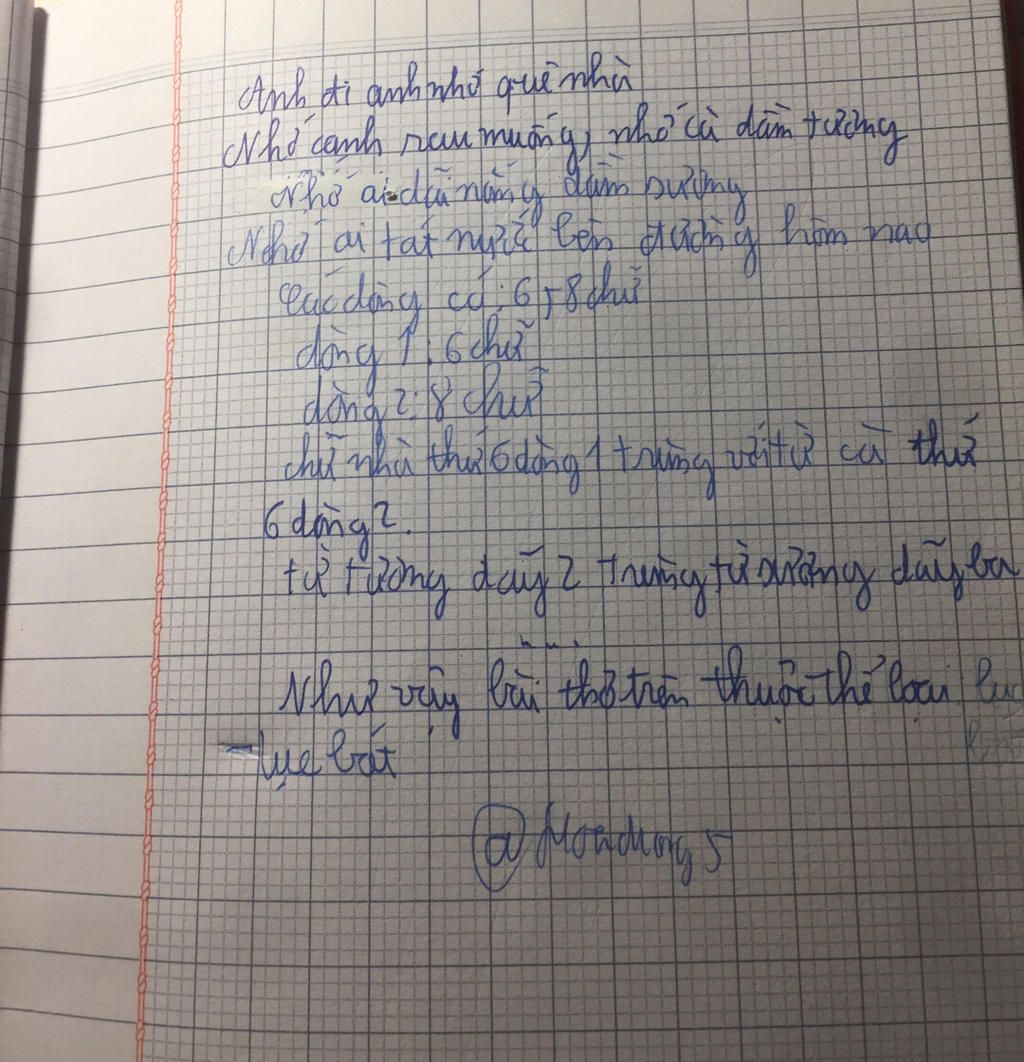 Anh đi anh nhớ quê nhà
Nhớ canh rau muống, nhớ cà dầm tương
Nhớ ai dãi nắng dầm sương
Nhớ ai tát nước bên đường hôm nao
Các dòng có: 6, 8 chữ
dòng 1: 6 chữ
dòng 2: 8 chữ
chữ nhà thứ 6 dòng 1 trùng với từ cà thứ
6 dòng 2.
từ tương dãy 2 trùng từ sương dãy ba
Như vậy bài thơ trên thuộc thể loại
- lục bát